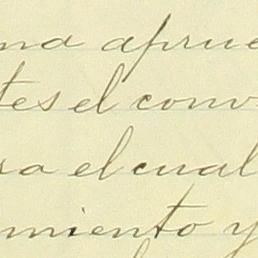 ma aprue
tes el conv
ra el cual
miento y